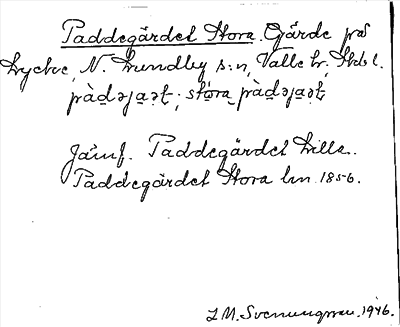 Paddegärdet Stora. Gärde på
Lycke, N. Lundby s:n, Valle hd, Skbl.
pàdəjaət; stóra pàdəjaət
Jämf. Paddegärdet Lilla.
Paddegärdet Stora lm 1856.
1946.